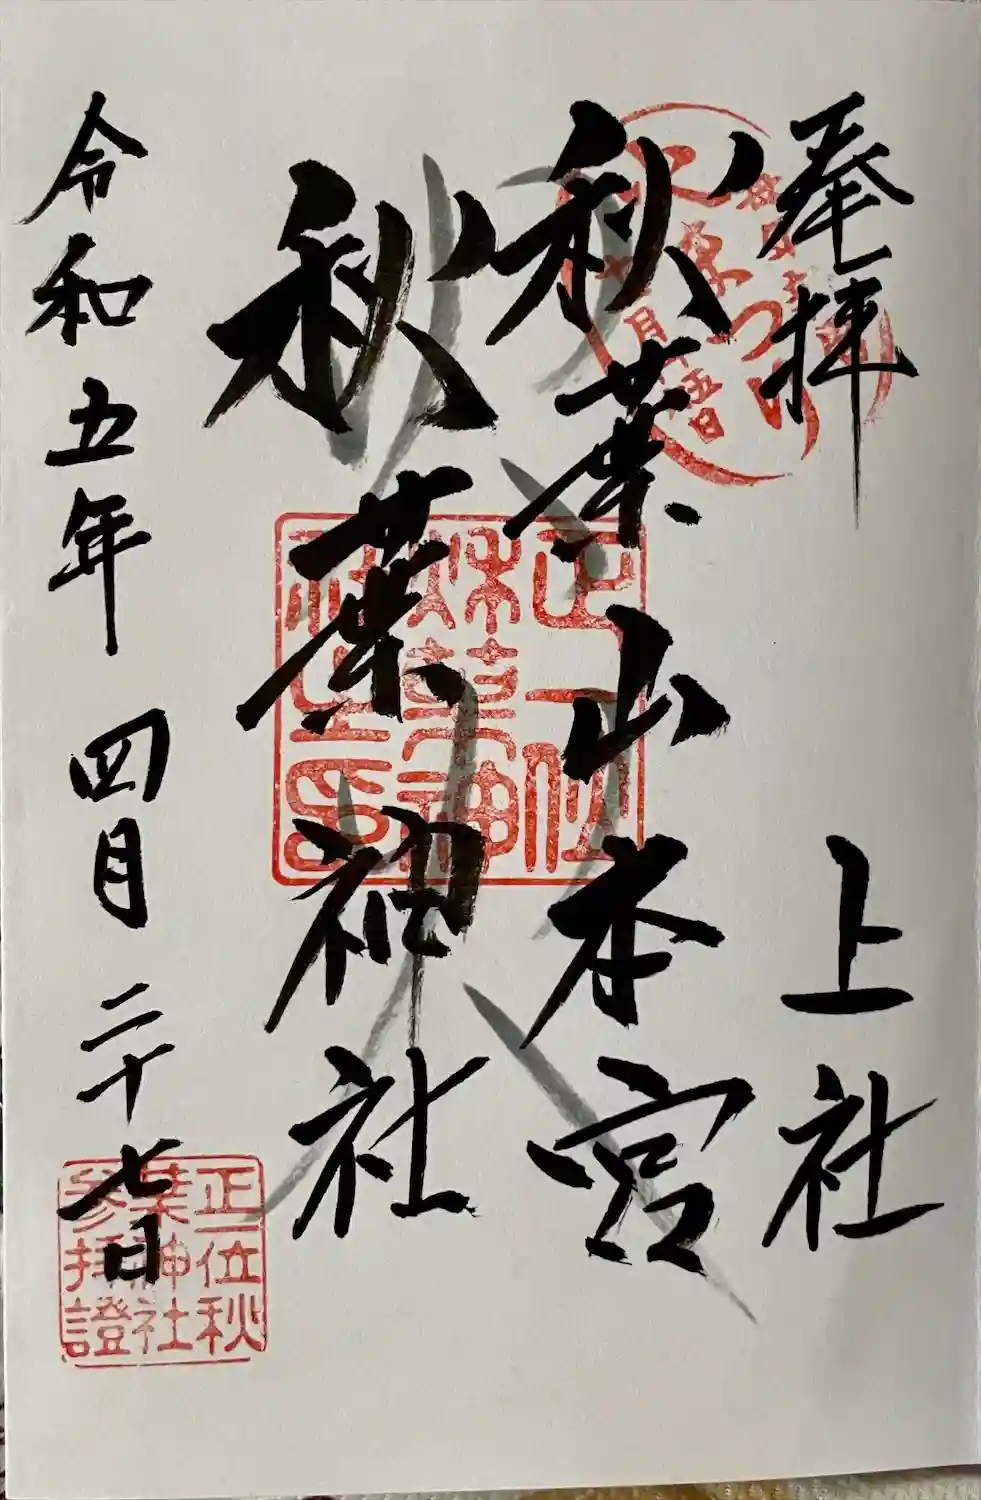 奉拝
上社
秋葉山本宮
秋葉神社
令和五年 四月 二十七日
正一位
秋葉神
社之璽
正一位秋
葉神社
参拝證